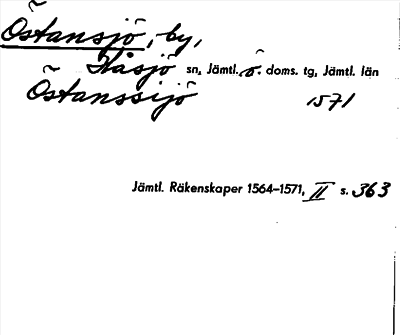 Östansjö, by,
Håsjö sn, Jämtl. ö. doms. tg, Jämtl. län
Östanssijö 1571
Jämtl. Räkenskaper 1564–1571, II s. 363